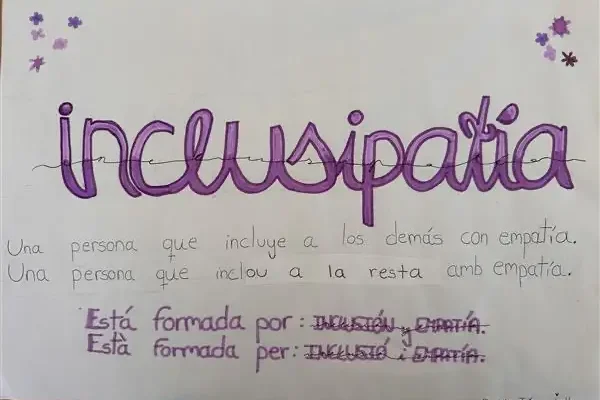 inclusipatía
Una persona que incluye a los demás con empatía.
Una persona que inclou a la resta amb empatía.
Está formada por: INCLUSIÓN y EMPATÍA.
Està formada per: INCLUSIÓ i EMPATÍA.